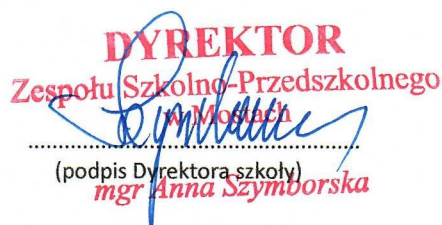 DYREKTOR
Zespołu Szkolno-Przedszkolnego
w Mostach
(podpis Dyrektora szkoły)
mgr Anna Szymborska